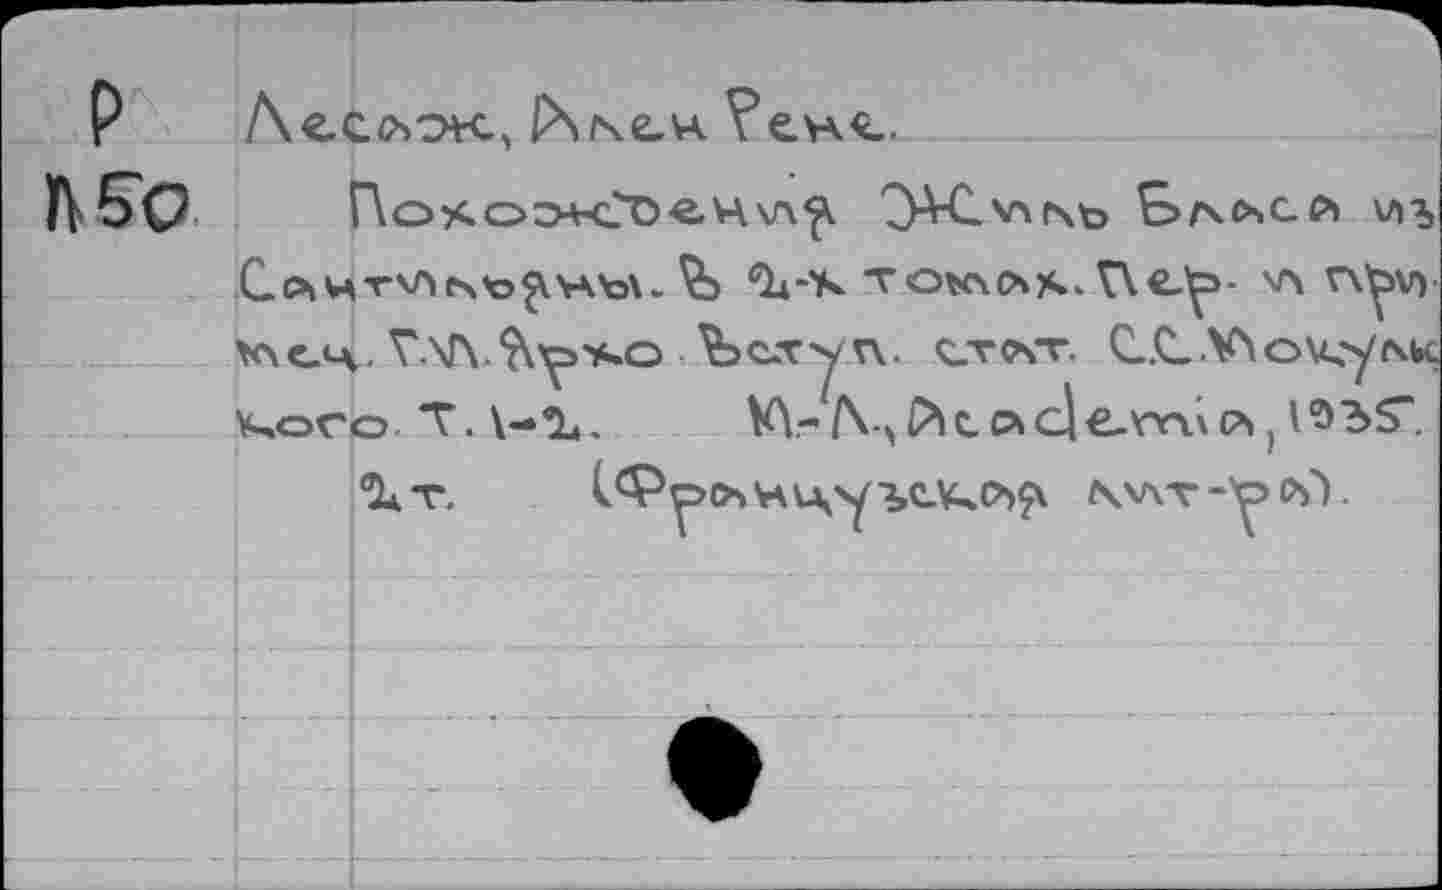 Р Лесаж, Ален Рене.
Л50 Похождения Жиль Бласа из
Сантильяны. В 2-х томах. Пер. и при-
меч. Г.И. Ярхо Вступ. стат. С.С. Мокуль-
ского Т. 1-2. М.-Л., Academia, 1935.
2 т. (Французская лит-ра).